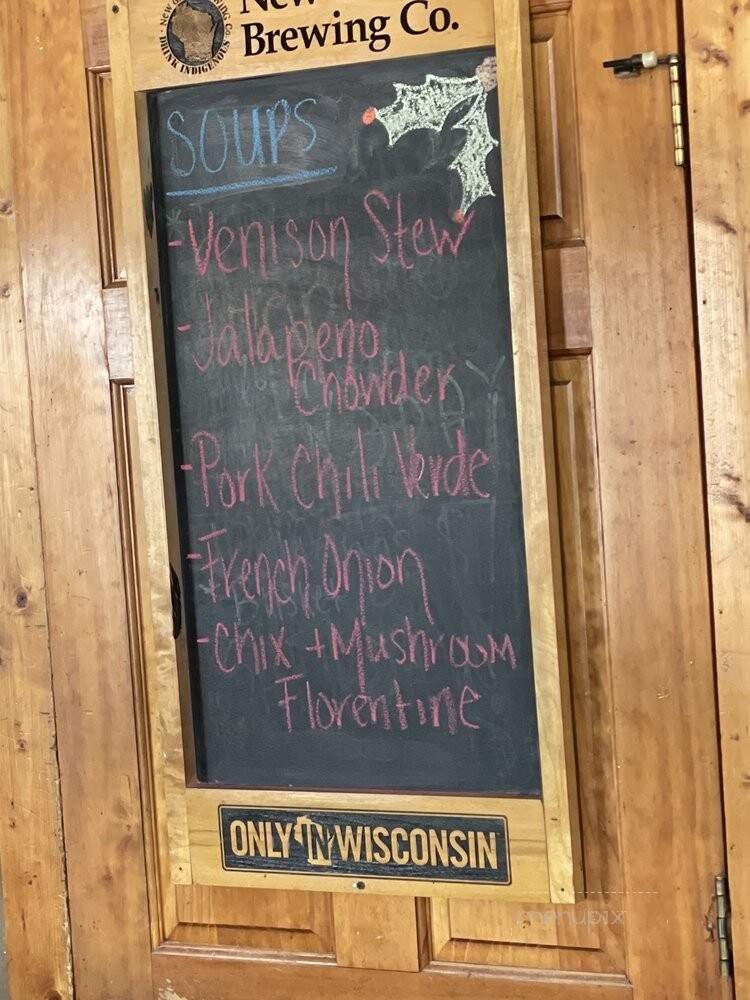 New
Brewing Co.
DRINK INDIGENOUS
SOUPS
-Venison Stew
-Jalapeno
Chowder
-Pork Chili Verde
-French Onion
-Chix + Mushroom
Florentine
ONLY IN WISCONSIN
menupix